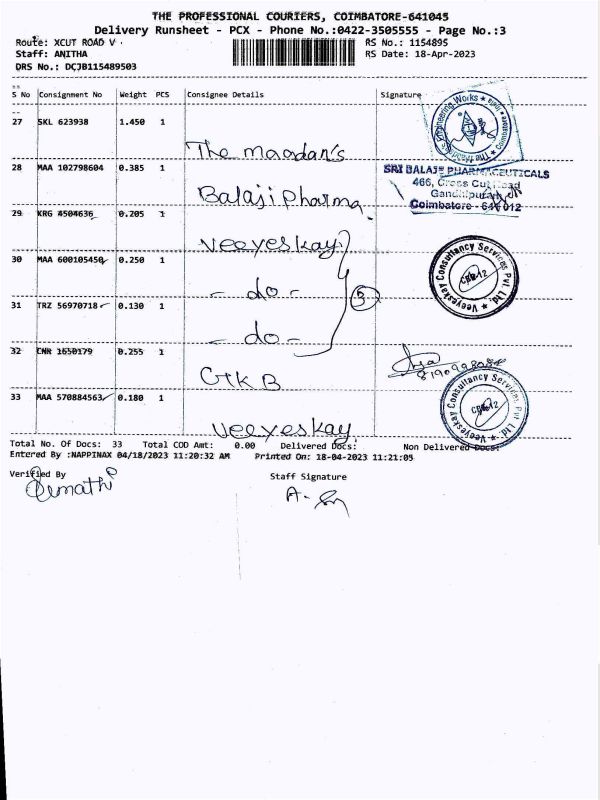 THE PROFESSIONAL COURIERS, COIMBATORE-641045
Delivery Runsheet - PCX - Phone No.:0422-3505555 - Page No.:3
Route: XCUT ROAD V
RS No.: 1154895
Staff: ANITHA
RS Date: 18-Apr-2023
DRS No.: DCJB115489503
S No Consignment No Weight PCS Consignee Details Signature
27 SKL 623938 1.450 1
Engineering Works
Coimbatore
The maadan's
28 MAA 102798604 0.385 1
SRI BALAJI PHARMACEUTICALS
466, Cross Cut Road
Gandhipuram
Coimbatore - 641 012
Balaji Pharma
29 KRG 4504636 0.205 1
Veeyeskay
30 MAA 600105450 0.250 1
- do -
Veeyeskay Consultancy Services Pvt. Ltd.
CBE-12
31 TRZ 56970718 0.130 1
3
- do -
32 CNR 1650179 0.255 1
GTKB
33 MAA 570884563 0.180 1
Veeyeskay Consultancy Services Pvt. Ltd.
CBE-12
Veeyeskay
Total No. Of Docs: 33 Total COD Amt: 0.00 Delivered Docs: Non Delivered Docs:
Entered By :NAPPINAX 04/18/2023 11:20:32 AM Printed On: 18-04-2023 11:21:05
Verified By
Staff Signature